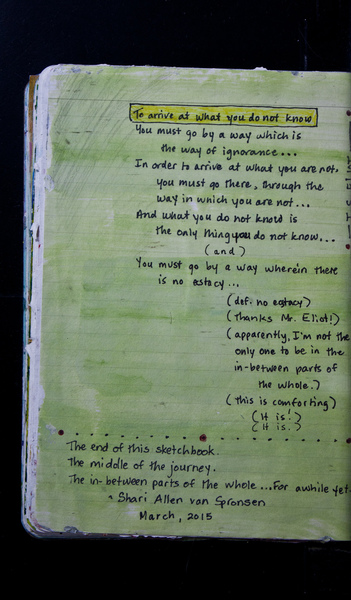 To arrive at what you do not know
You must go by a way which is
the way of ignorance...
In order to arrive at what you are not,
you must go there, through the
way in which you are not...
And what you do not know is
the only thing you do not know...
(and)
You must go by a way wherein there
is no ecstacy...
(def. no ecstacy)
(Thanks Mr. Eliot!)
(apparently, I'm not the
only one to be in the
in-between parts of
the whole.)
(This is comforting)
(It is!)
(It is.)
The end of this sketchbook.
The middle of the journey.
The in-between parts of the whole...For awhile yet
~ Shari Allen van Spronsen
March, 2015